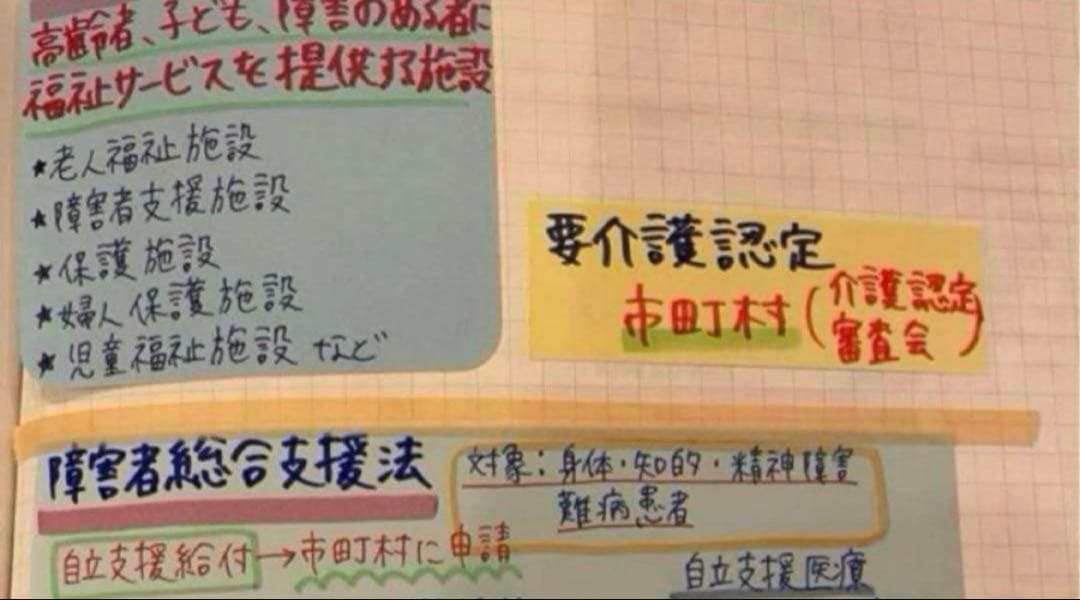 高齢者、子ども、障害のある者に
福祉サービスを提供する施設
★老人福祉施設
★障害者支援施設
★保護施設
★婦人保護施設
★児童福祉施設 など
要介護認定
市町村(介護認定
審査会)
障害者総合支援法
対象:身体・知的・精神障害
難病患者
自立支援給付→市町村に申請
自立支援医療